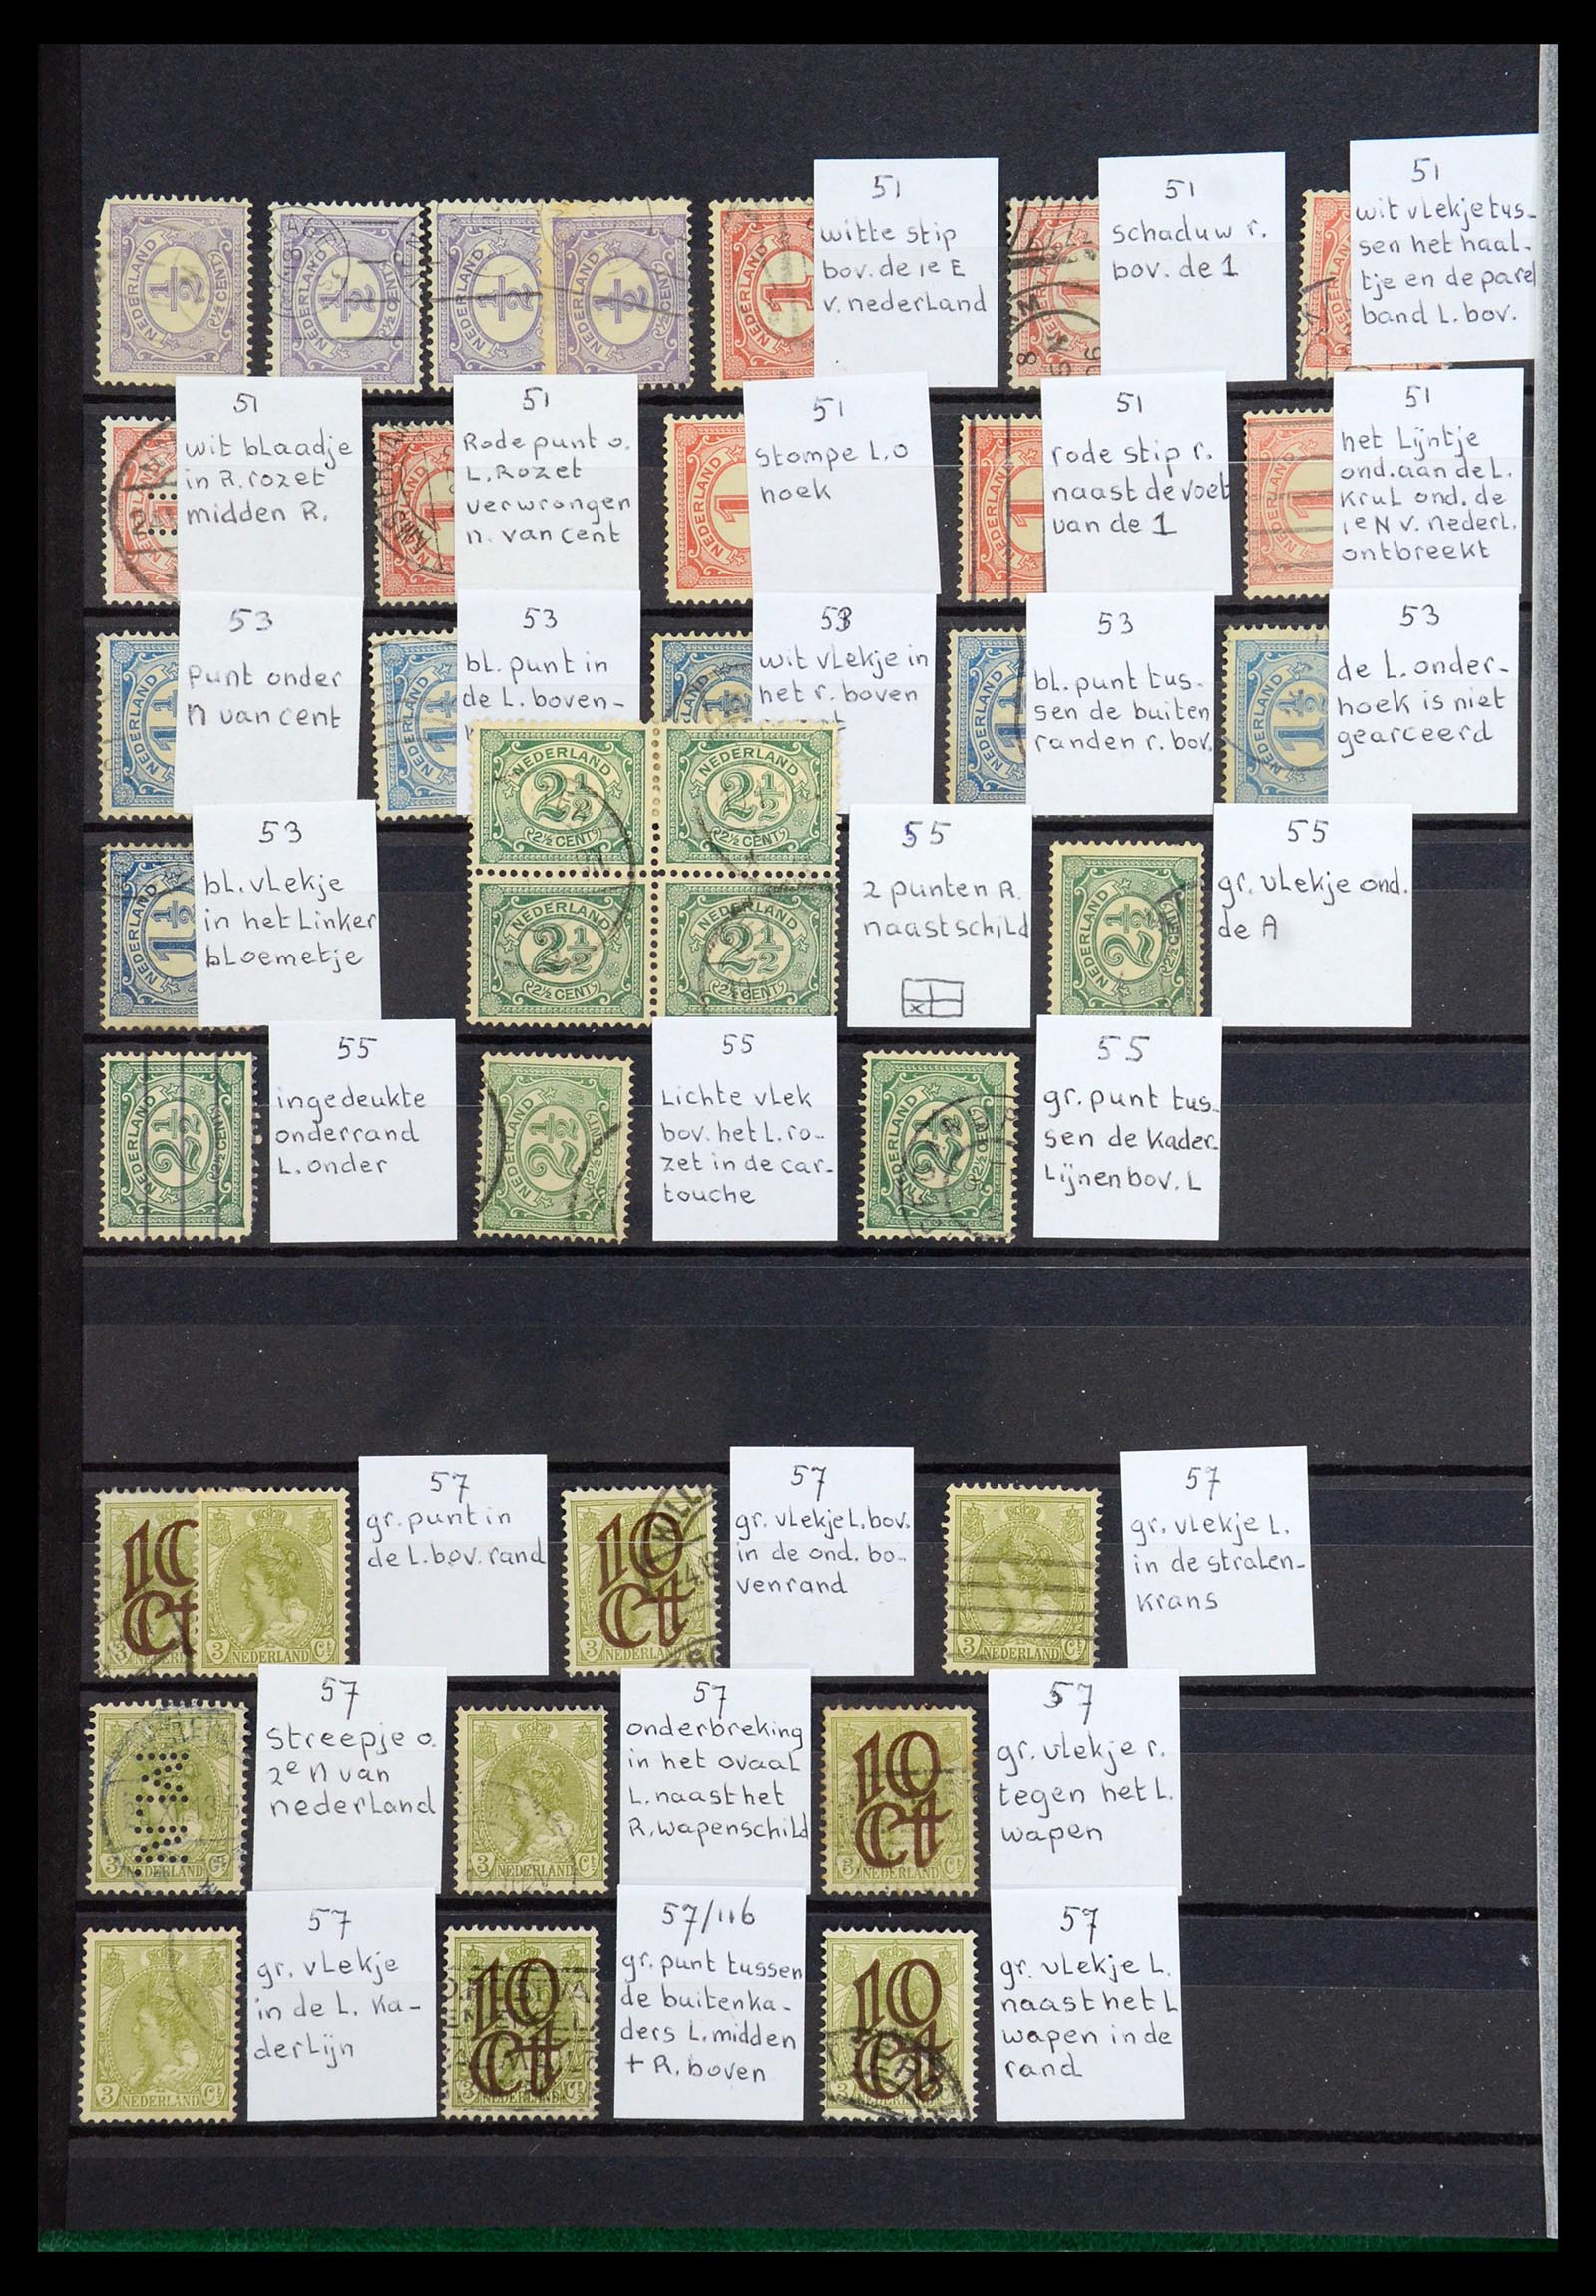 51
witte stip
bov. de 1e E
v. nederland
51
schaduw r.
bov. de 1
51
wit vlekje tus-
sen het haal-
tje en de parel
band L. bov.
51
wit blaadje
in R. rozet
midden R.
51
Rode punt o.
L. Rozet
verwrongen
n. van cent
51
stompe L.o
hoek
51
rode stip r.
naast de voet
van de 1
51
het Lijntje
ond. aan de L.
Krul ond. de
1e N v. nederl.
ontbreekt
53
punt onder
n van cent
53
bl. punt in
de L. boven-
53
wit vlekje in
het r. boven
53
bl. punt tus-
sen de buiten
randen r. bov.
53
de L. onder-
hoek is niet
gearceerd
53
bl. vlekje
in het Linker
bloemetje
NEDERLAND
2½
(2½ CENT)
NEDERLAND
2½
(2½ CENT)
NEDERLAND
2½
(2½ CENT)
NEDERLAND
2½
(2½ CENT)
55
2 punten R.
naast schild
x
55
gr. vlekje ond.
de A
55
ingedeukte
onderrand
L. onder
55
Lichte vlek
bov. het L. ro-
zet in de car-
touche
55
gr. punt tus-
sen de Kader-
Lijnen bov. L
10
Ct
3 NEDERLAND Ct
57
gr. punt in
de L. bov. rand
10
Ct
57
gr. vlekje L. bov.
in de ond. bo-
venrand
3 NEDERLAND Ct
57
gr. vlekje L.
in de stralen-
krans
3 NEDERLAND Ct
57
Streepje o.
2e n van
nederland
3 NEDERLAND Ct
57
onderbreking
in het ovaal
L. naast het
R. wapenschild
10
Ct
3 NEDERLAND Ct
57
gr. vlekje r.
tegen het L.
wapen
3 NEDERLAND Ct
57
gr. vlekje
in de L. Ka-
derlijn
10
Ct
3 NEDERLAND Ct
57/116
gr. punt tussen
de buitenka-
ders L. midden
+ R. boven
10
Ct
57
gr. vlekje L.
naast het L
wapen in de
rand